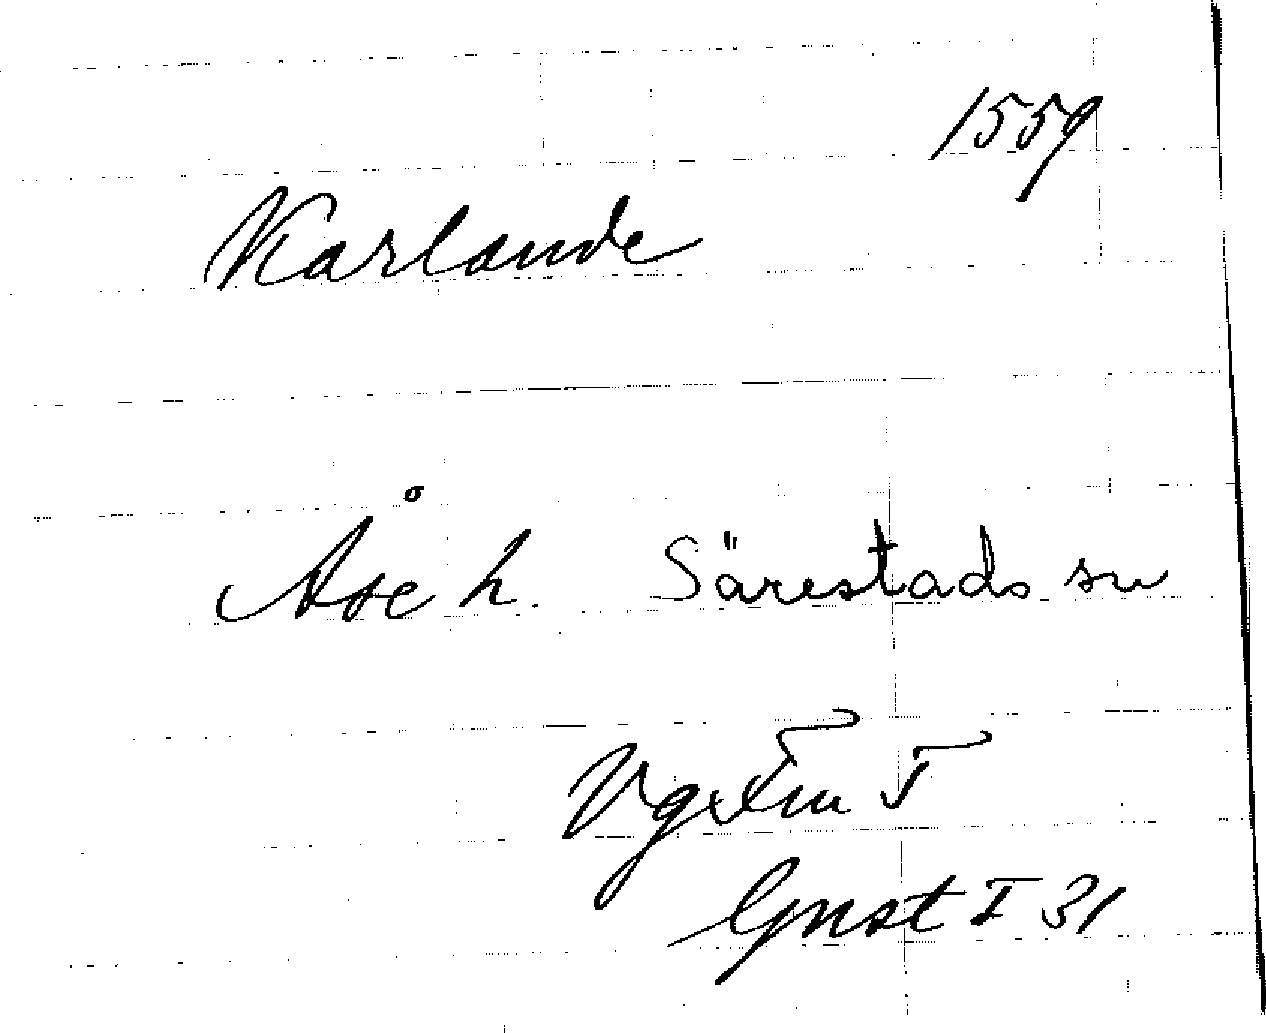 1559
Karlande
Åse h. Särestads sn
Gnst I 31